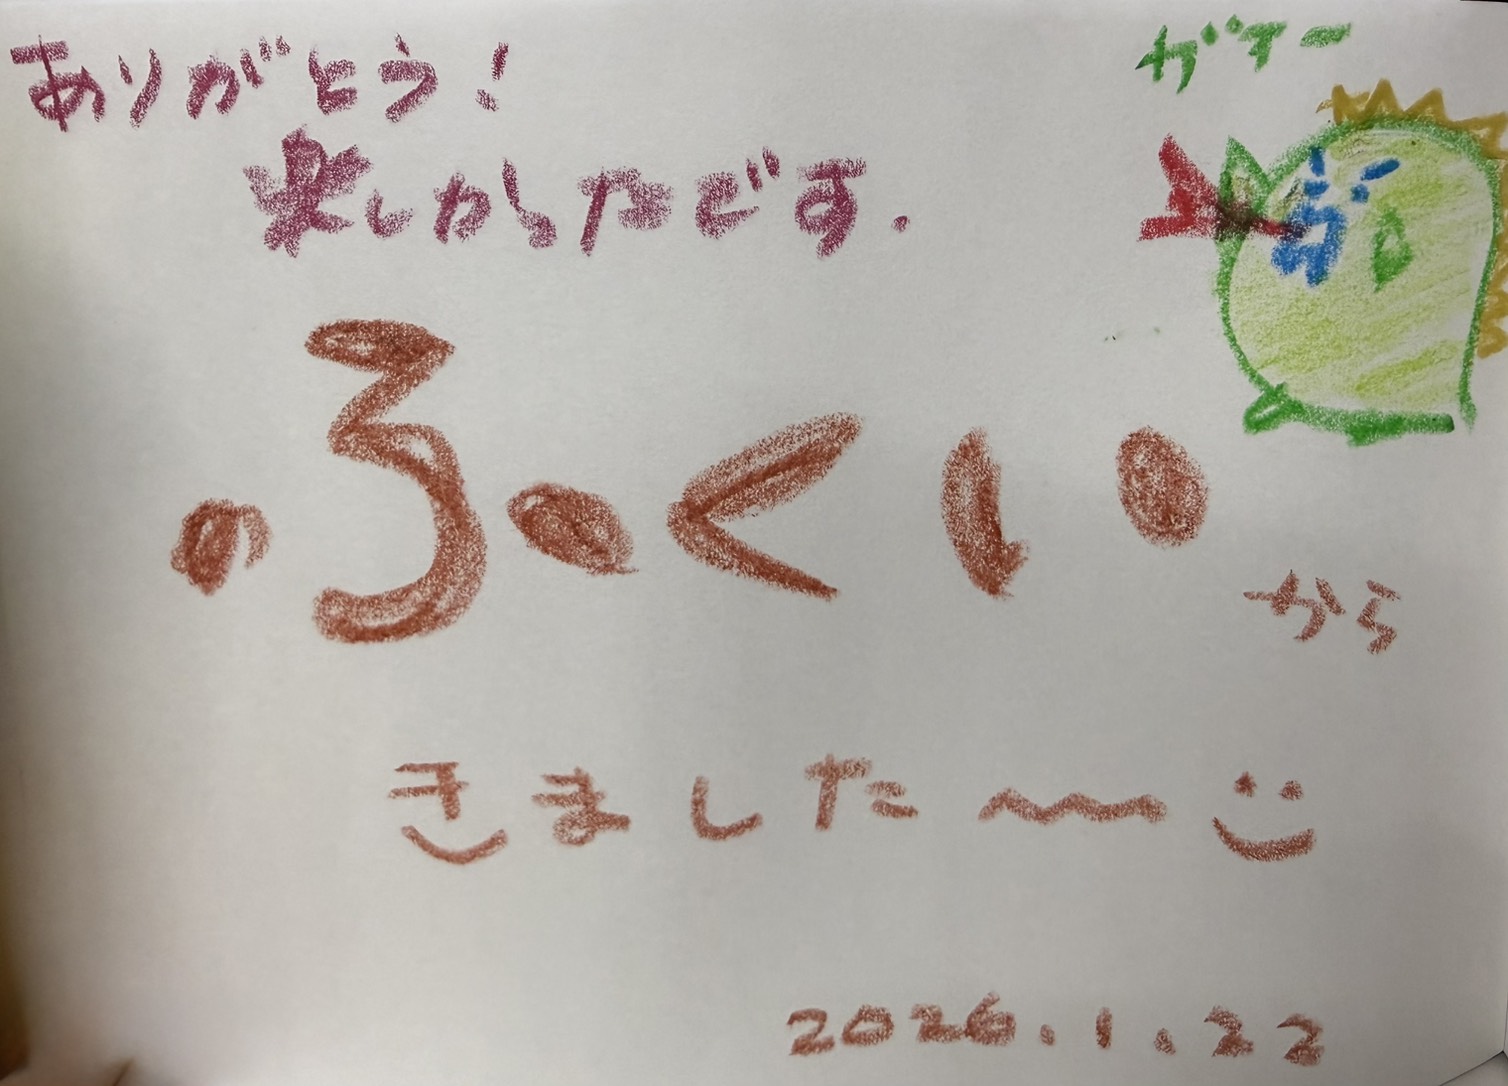 ありがとう!
楽しかったです.
ガオー
ふくい
から
きました〜
2026.1.22